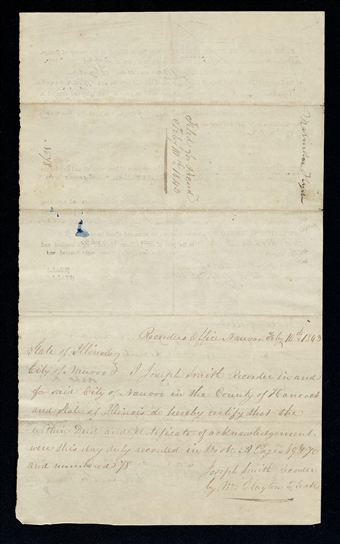 Filed for Record
Feby 10th 1843
Recorders Office Nauvoo Feby 10th 1843
State of Illinois
City of Nauvoo I Joseph Smith Recorder in and
for said City of Nauvoo in the County of Hancock
and State of Illinois do hereby certify that the
within Deed and certificate of acknowledgement
were this day duly recorded in Book A Pages
and numbered 178
Joseph Smith Recorder
by Wm Clayton Clerk